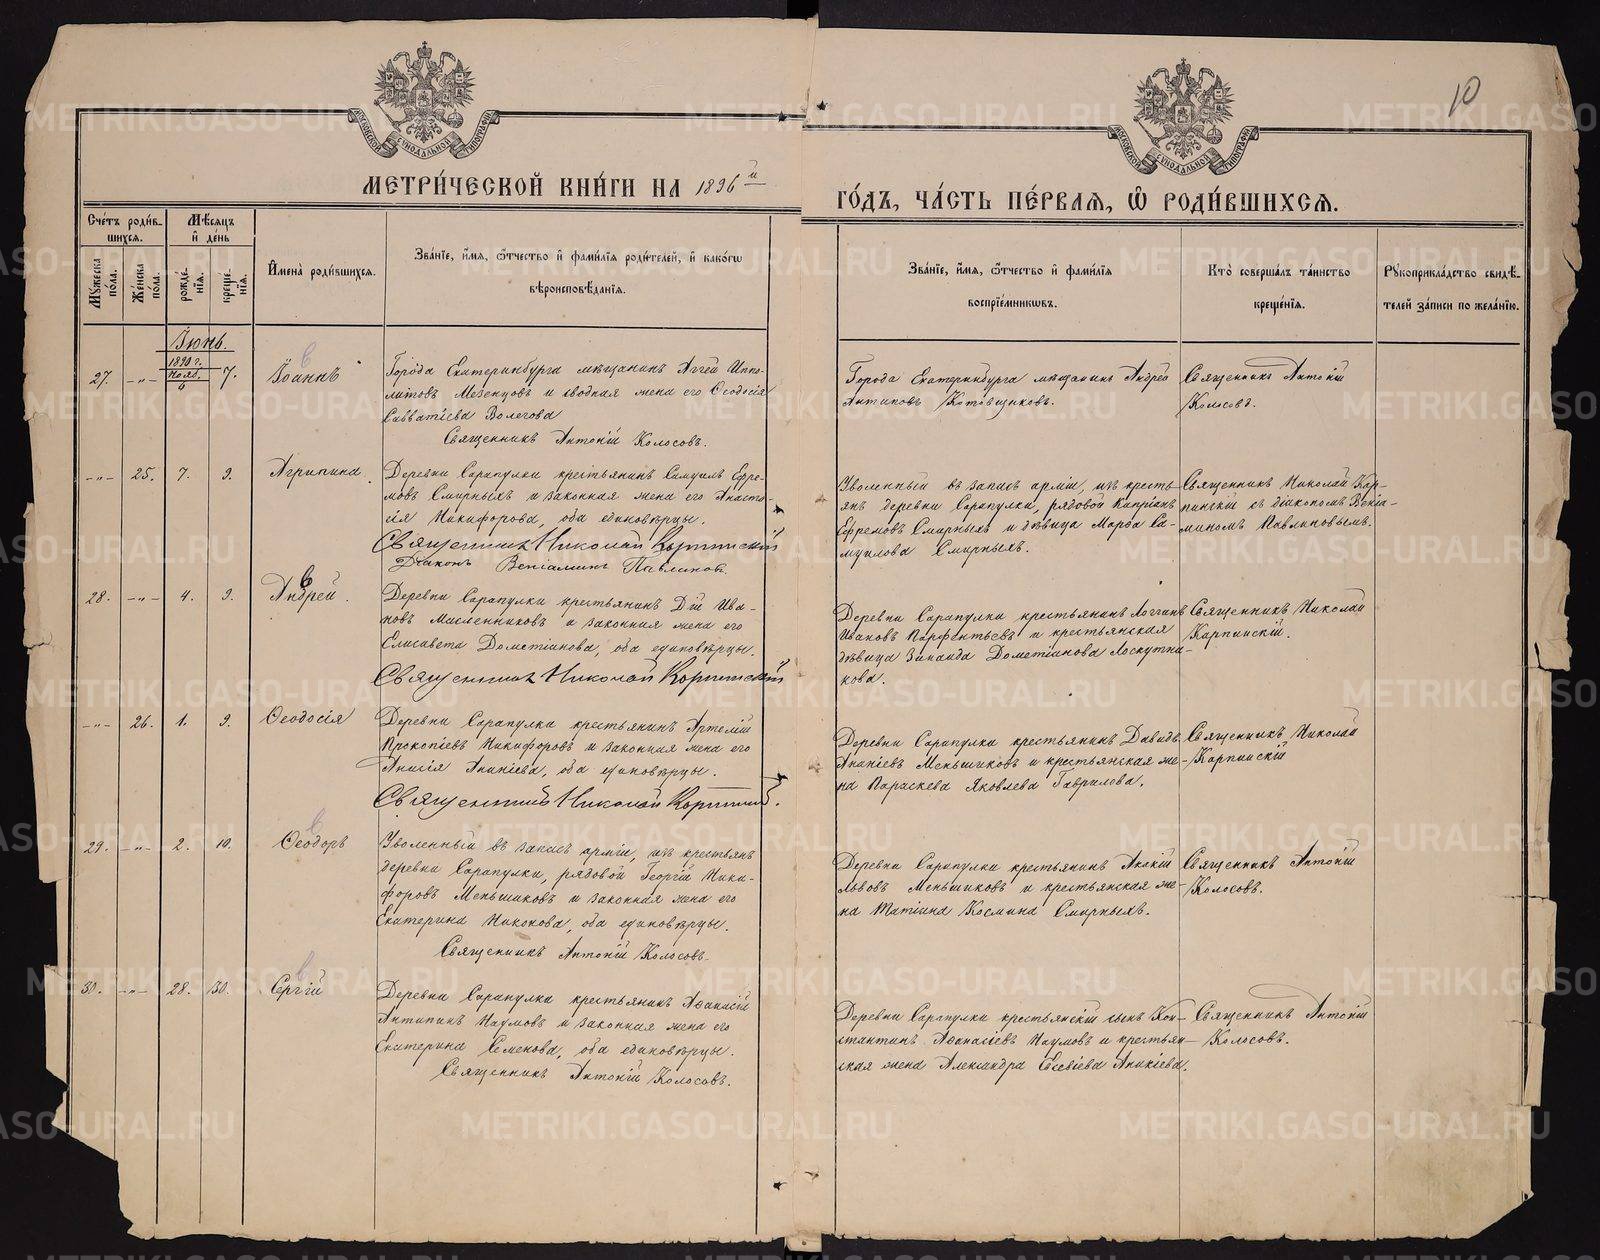 10
МОСКОВСКОЙ СѴНОДАЛЬНОЙ ТИПОГРАФІИ
МОСКОВСКОЙ СѴНОДАЛЬНОЙ ТИПОГРАФІИ
МЕТРИ́ЧЕСКОЙ КНИ́ГИ НА 1896й
ГО́ДЪ, ЧА́СТЬ ПЕ́РВАЯ, Ѡ РОДИ́ВШИХСЯ.
Сче́тъ роди́вшихся.
Мѣ́сяцъ и де́нь
Мꙋ́жеска по́ла.
Же́нска по́ла.
рожде́нїя.
креще́нїя.
И҆мена̀ роди́вшихся.
Зва́нїе, и҆́мя, ѻ҆́тчество и҆ фами́лїя роди́телей, и҆ како́гѡ
вѣроисповѣ́данїя.
Зва́нїе, и҆́мя, ѻ҆́тчество и҆ фами́лїя
воспрїе́мникѡвъ.
Кто̀ соверша́лъ та́инство
креще́нїя.
Рꙋкоприкла́дство свидѣ́телей за́писи по жела́нїю.
Іюнь.
27. -"- 1890 г. Нояб. 6 7. Іоаннъ
Города Екатеринбурга мѣщанинъ Аггей Иппо-
литовъ Мезенцовъ и сводная жена его Ѳеодосія
Савватіева Волегова
Священникъ Антоній Колосовъ.
Города Екатеринбурга мѣщанинъ Андрей
Антиповъ Котовщиковъ.
Священникъ Антоній
Колосовъ.
-"- 25. 7. 9. Агрипина.
Деревни Сарапулки крестьянинъ Самуилъ Ефре-
мовъ Смирныхъ и законная жена его Анаста-
сія Никифорова, оба единовѣрцы.
Священникъ Николай Карпинскій
Діаконъ Веніаминъ Павлиновъ.
Уволенный въ запасъ арміи, изъ кресть-
янъ деревни Сарапулки, рядовой Кипріанъ
Ефремовъ Смирныхъ и дѣвица Марѳа Са-
муилова Смирныхъ.
Священникъ Николай Кар-
пинскій съ діакономъ Веніа-
миномъ Павлиновымъ.
28. -"- 4. 9. Андрей.
Деревни Сарапулки крестьянинъ Дій Ива-
новъ Масленниковъ и законная жена его
Елисавета Дометіанова, оба единовѣрцы.
Священникъ Николай Карпинскій
Деревни Сарапулки крестьянинъ Логгинъ
Ивановъ Парфентьевъ и крестьянская
дѣвица Зинаида Дометіанова Лоскутни-
кова.
Священникъ Николай
Карпинскій.
-"- 26. 1. 9. Ѳеодосія
Деревни Сарапулки крестьянинъ Артемій
Прокопіевъ Никифоровъ и законная жена его
Анисія Ананіева, оба единовѣрцы.
Священникъ Николай Карпинскій.
Деревни Сарапулки крестьянинъ Давидъ
Ананіевъ Меньшиковъ и крестьянская же-
на Параскева Яковлева Гаврилова.
Священникъ Николай
Карпинскій
29. -"- 2. 10. Ѳеодоръ
Уволенный въ запасъ арміи, изъ крестьянъ
деревни Сарапулки, рядовой Георгій Ники-
форовъ Меньшиковъ и законная жена его
Екатерина Никонова, оба единовѣрцы.
Священникъ Антоній Колосовъ.
Деревни Сарапулки крестьянинъ Акакій
Львовъ Меньшиковъ и крестьянская же-
на Татіана Космина Смирныхъ.
Священникъ Антоній
Колосовъ.
30. -"- 28. 30. Сергій
Деревни Сарапулки крестьянинъ Аѳанасій
Антипинъ Наумовъ и законная жена его
Екатерина Семенова, оба единовѣрцы.
Священникъ Антоній Колосовъ.
Деревни Сарапулки крестьянскій сынъ Кон-
стантинъ Аѳанасіевъ Наумовъ и крестьян-
ская жена Александра Евсевіева Аникіева.
Священникъ Антоній
Колосовъ.
METRIKI.GASO-URAL.RU